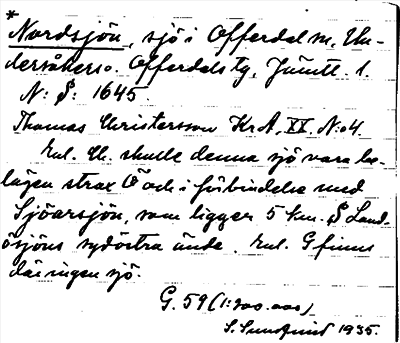 *
Nordsjön, sjö i Offerdal m, Un-
dersåkers o. Offerdals tg, Jämtl. l.
N: S: 1645.
Thomas Christersson KrA, XX, N:o 4
Enl. U. skulle denna sjö vara be-
lägen strax Ö och i förbindelse med
Sjöarsjön, som ligger 5 km. S Land-
ösjöns sydöstra ände. Enl. G finns
där ingen sjö.
G. 59 (1:200.000)
S. Sundqvist 1935.